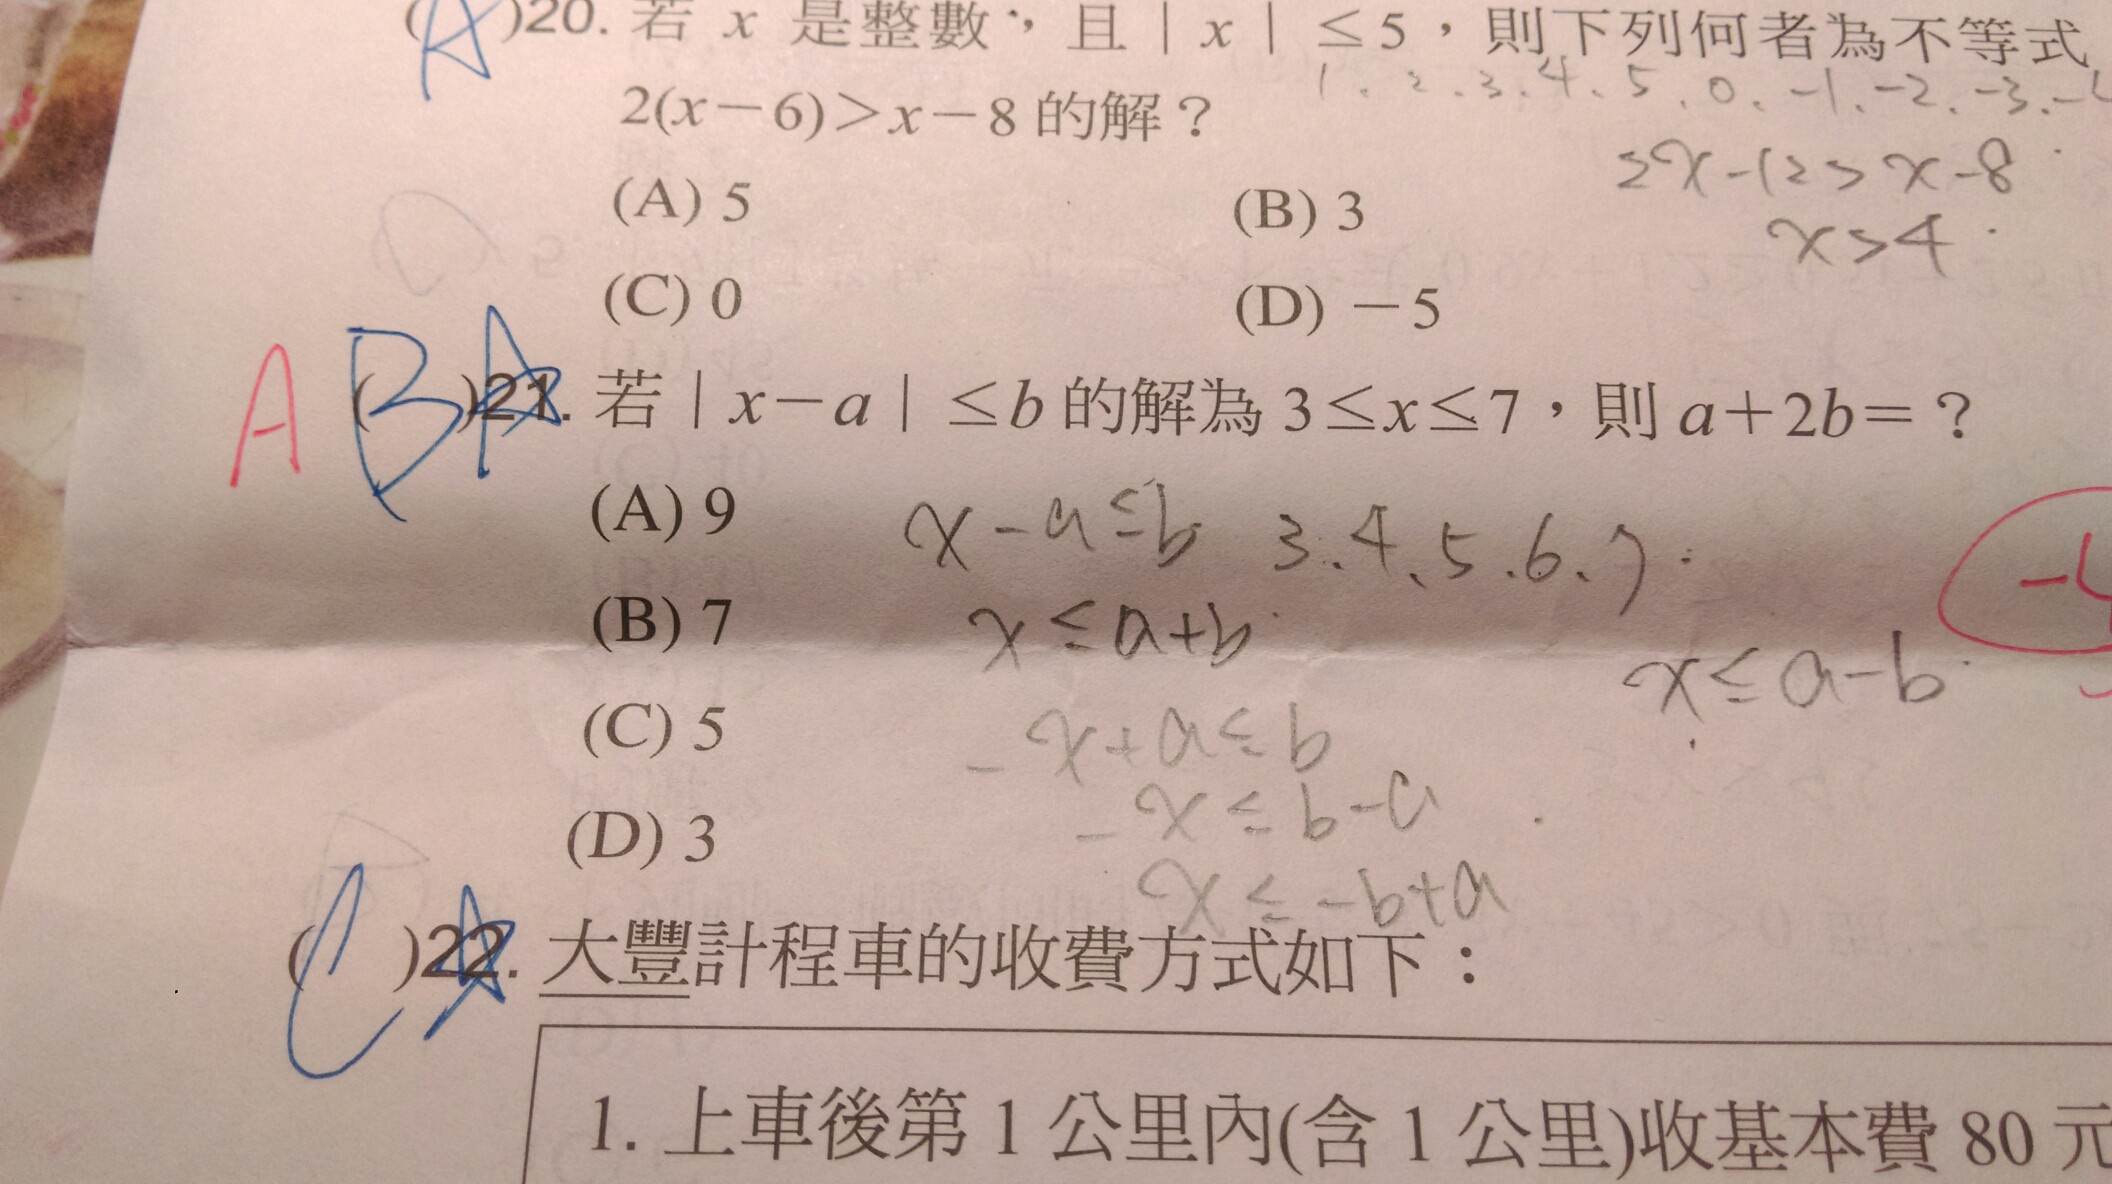 (A)20. 若 x 是整數，且｜x｜≤5，則下列何者為不等式
1、2、3、4、5、0、-1、-2、-3、-4
2(x－6)＞x－8 的解？
2x-12>x-8
(A) 5 (B) 3
x>4
(C) 0 (D) －5
A (B)21. 若｜x－a｜≤b 的解為 3≤x≤7，則 a＋2b＝？
(A) 9 x-a≤b 3、4、5、6、7
(B) 7 x≤a+b
x≤a-b
(C) 5
(D) 3
(C)22. 大豐計程車的收費方式如下：
1. 上車後第 1 公里內(含 1 公里)收基本費 80 元